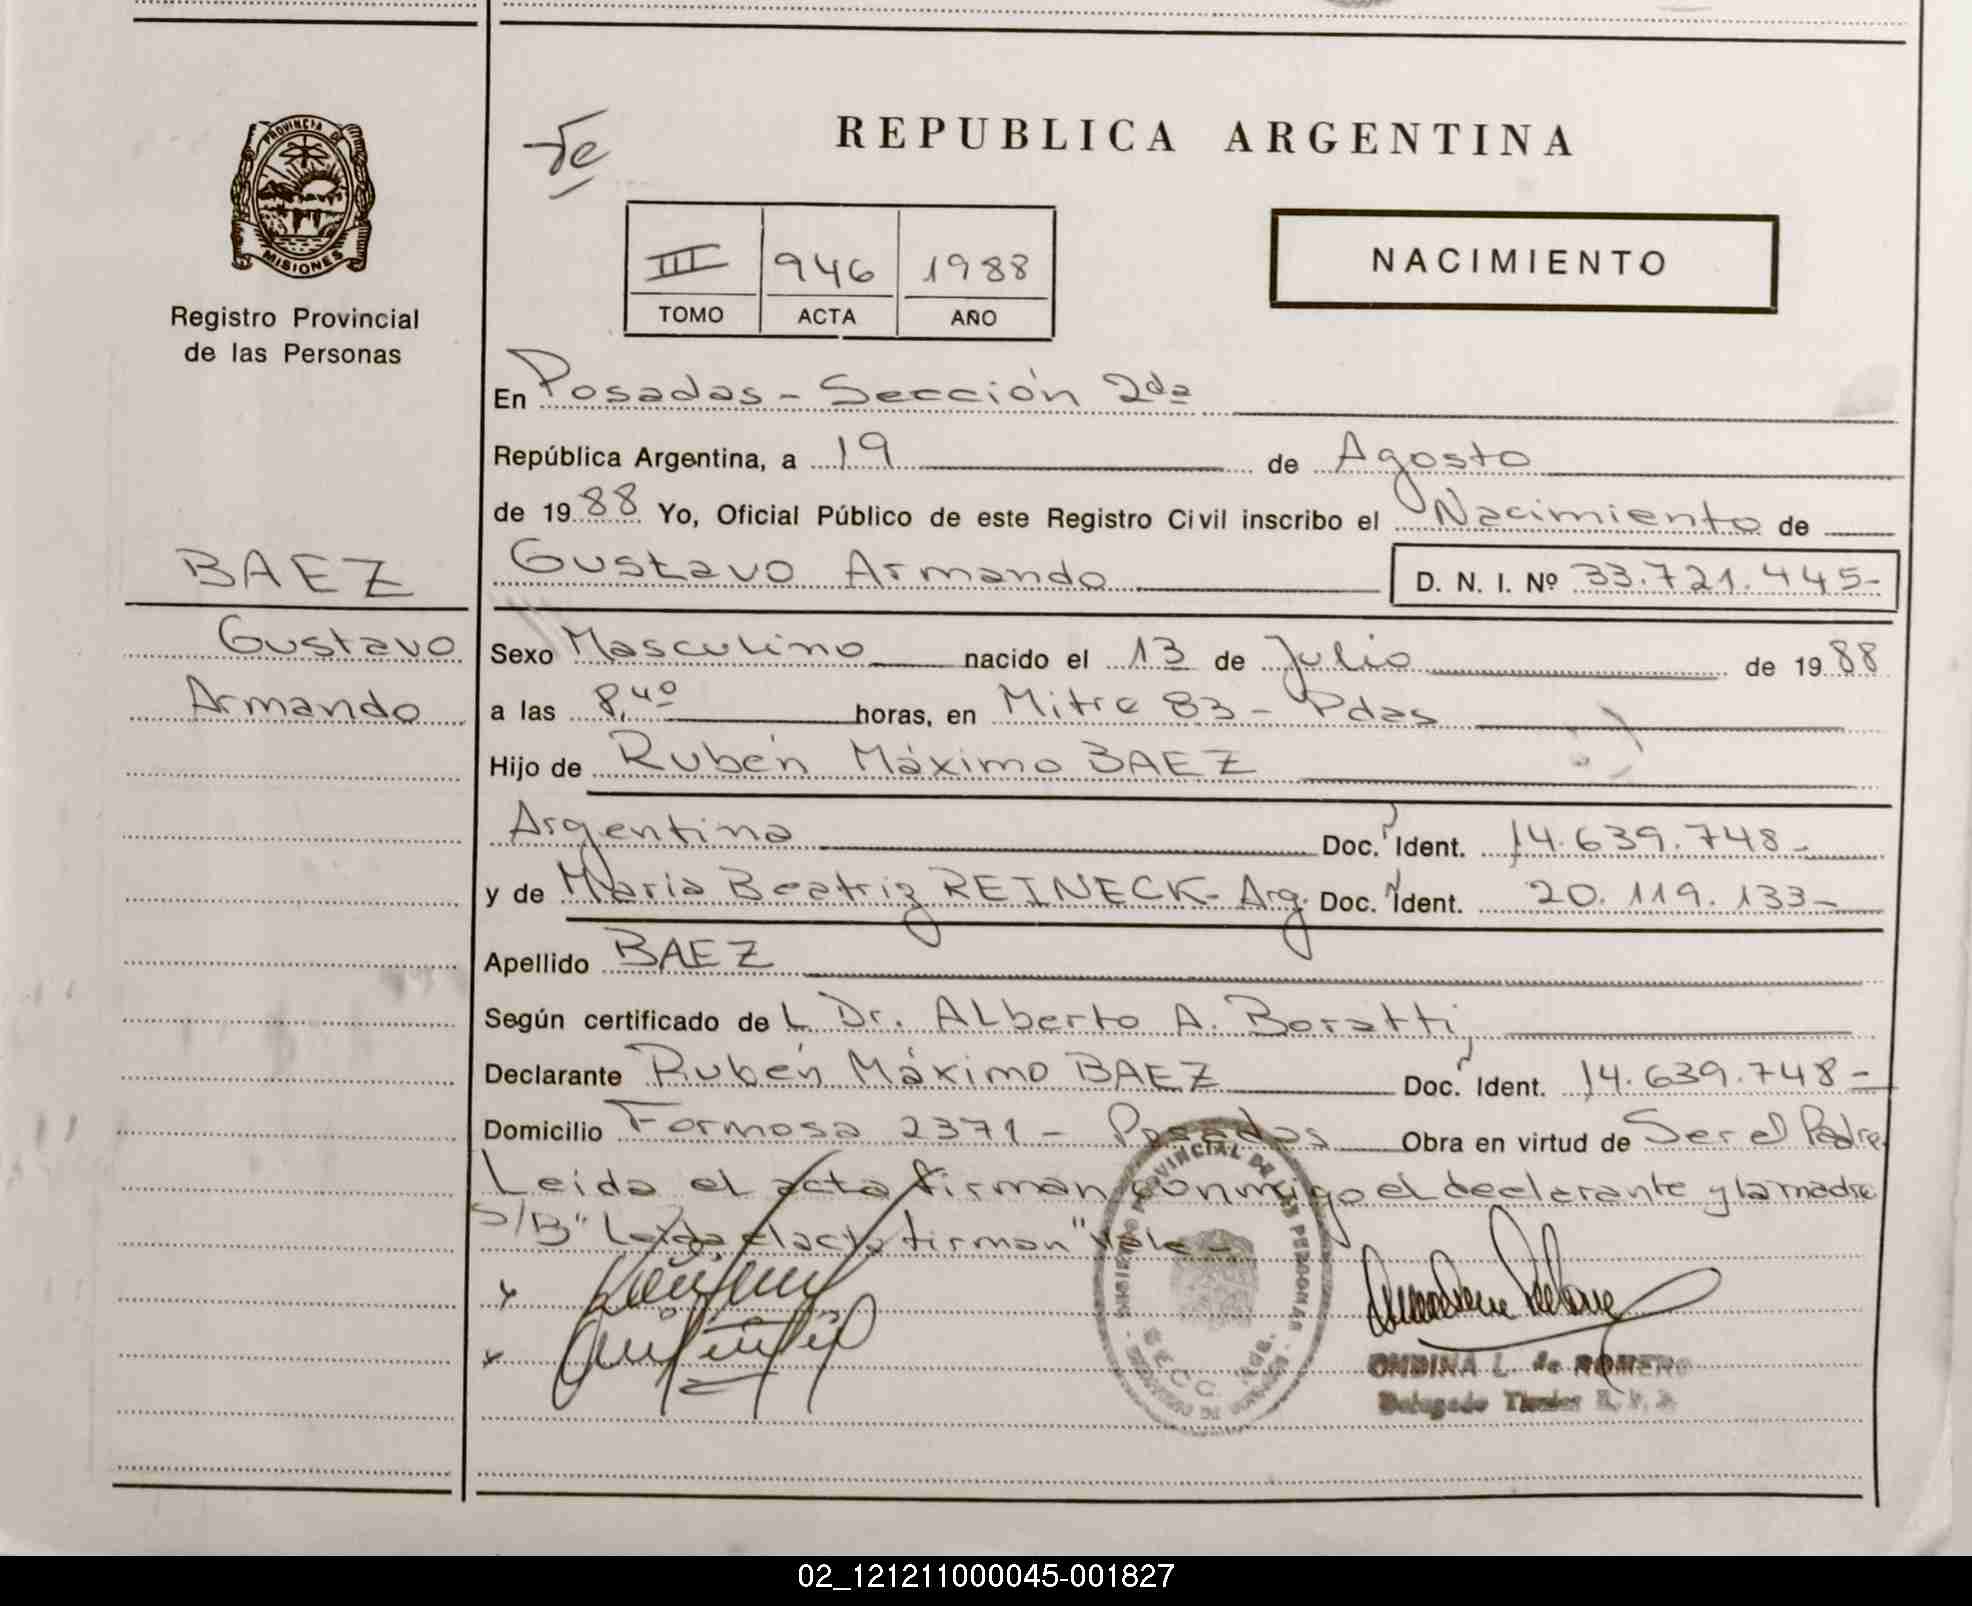 PROVINCIA DE
MISIONES
Registro Provincial
de las Personas
BAEZ
Gustavo
Armando
REPUBLICA ARGENTINA
III 946 1988
TOMO ACTA AÑO
NACIMIENTO
En Posadas - Sección 2da
República Argentina, a 19 de Agosto
de 1988 Yo, Oficial Público de este Registro Civil inscribo el Nacimiento de
Gustavo Armando D. N. I. Nº 33.721.445-
Sexo Masculino nacido el 13 de Julio de 1988
a las 8,40 horas, en Mitre 83 - Pdas
Hijo de Rubén Máximo BAEZ
Argentina Doc. Ident. 14.639.748-
y de María Beatriz REINECK - Arg. Doc. Ident. 20.119.133-
Apellido BAEZ
Según certificado de L Dr. ALberto A. Boratti,
Declarante Rubén Máximo BAEZ Doc. Ident. 14.639.748-
Domicilio Formosa 2371 - Posadas Obra en virtud de Ser el Padre
Leida el acta firman conmigo el declarante y la madre
S/B "Leida el acta firman" Vale -
ONDINA L. de ROMERO
Delegado Titular R. P. P.
02_121211000045-001827